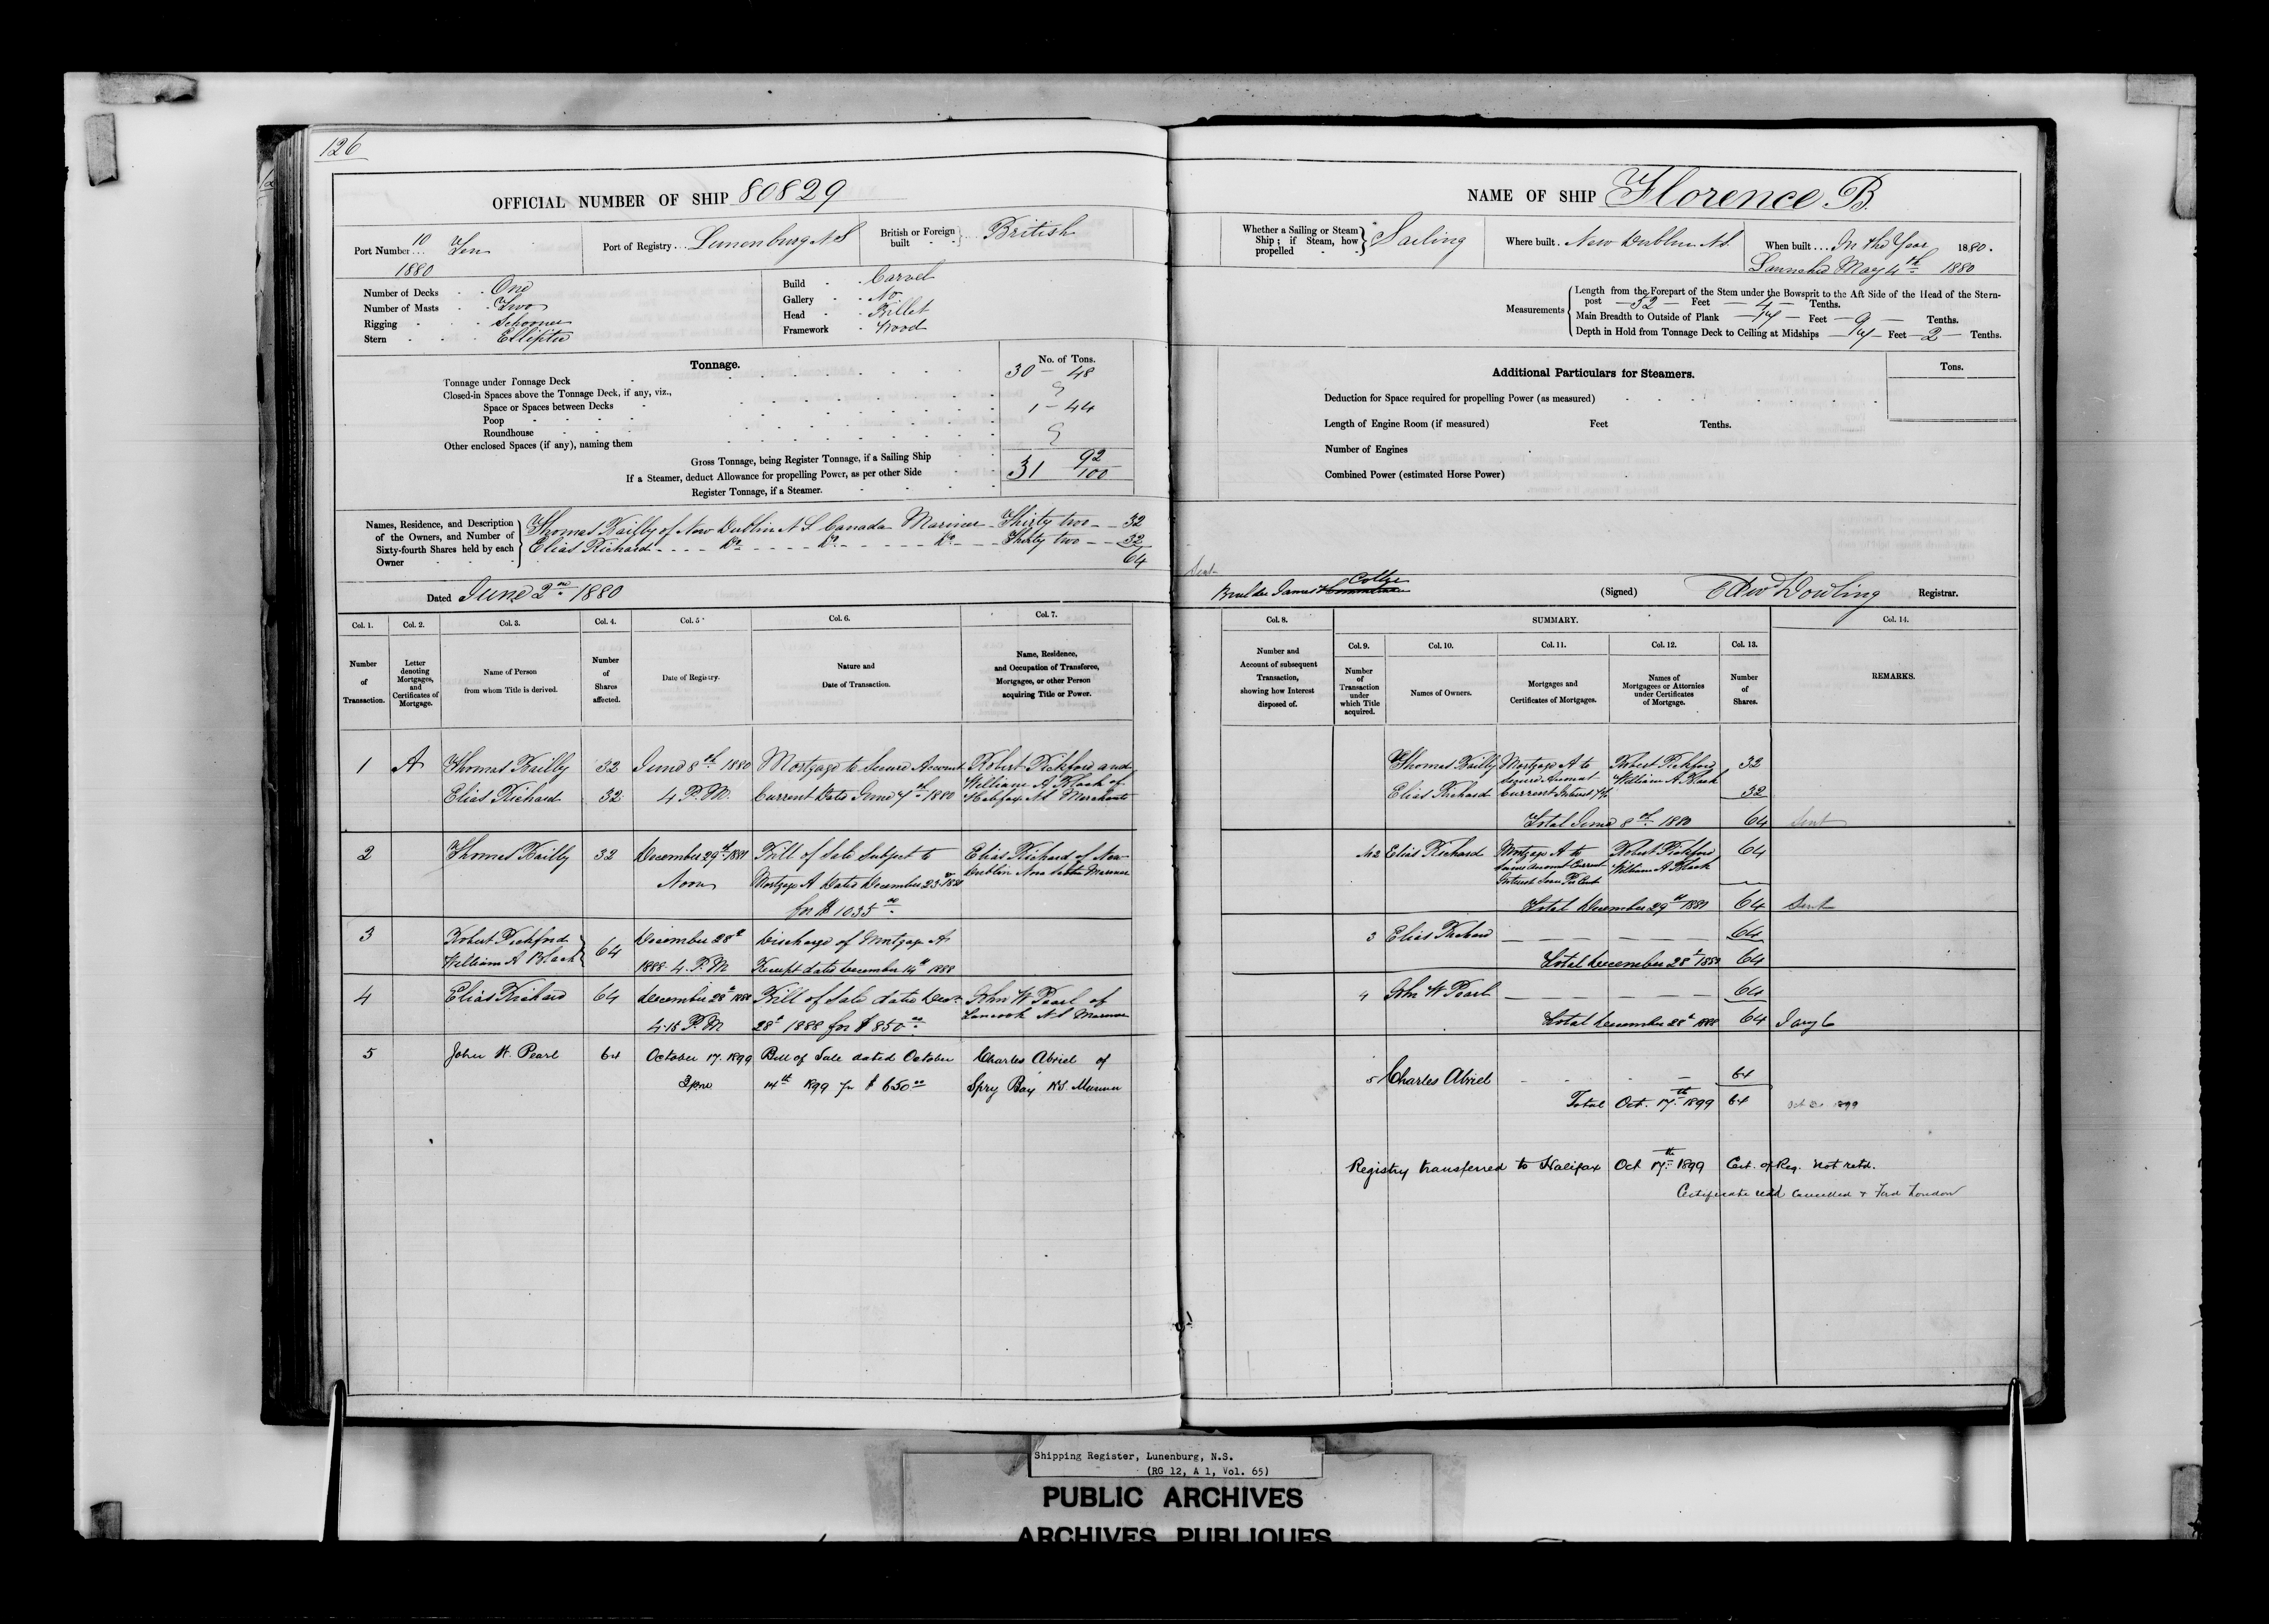 126
OFFICIAL NUMBER OF SHIP 80829
Port Number 10 Ten
1880
Port of Registry Lunenburg N S
British or Foreign built British
Number of Decks One
Number of Masts Two
Rigging Schooner
Stern Elliptic
Build Carvel
Gallery No
Head Billet
Framework Wood
Tonnage.
No. of Tons.
Tonnage under Tonnage Deck 30 - 48
Closed-in Spaces above the Tonnage Deck, if any, viz.,
Space or Spaces between Decks
Poop 1 - 44
Roundhouse
Other enclosed Spaces (if any), naming them
Gross Tonnage, being Register Tonnage, if a Sailing Ship 31 92/100
If a Steamer, deduct Allowance for propelling Power, as per other Side
Register Tonnage, if a Steamer.
Names, Residence, and Description of the Owners, and Number of Sixty-fourth Shares held by each Owner
Thomas Bailly of New Dublin N S Canada Mariner - Thirty two - - 32
Elias Richard - - - - Do - - - - Do - - - - Do - - - Thirty two - - 32
64
Dated June 2nd 1880
Col. 1. Col. 2. Col. 3. Col. 4. Col. 5 Col. 6. Col. 7.
Number of Transaction.
Letter denoting Mortgages, and Certificates of Mortgage.
Name of Person from whom Title is derived.
Number of Shares affected.
Date of Registry.
Nature and Date of Transaction.
Name, Residence, and Occupation of Transferee, Mortgagee, or other Person acquiring Title or Power.
1 A Thomas Bailly 32 June 8th 1880 Mortgage to Secure Account Robert Pickford and
William A Black of
Elias Richard 32 4 P.M. Current Date June 7th 1880 Halifax N S Merchants
2 Thomas Bailly 32 December 29th Bill of Sale Subject to Elias Richard of New
Noon Mortgage A Dated December 23rd Dublin Nova Scotia Mariner
for $ 1035 00
3 Robert Pickford 64 December 28th Discharge of Mortgage A
William A Black 1888 4. P.M Receipt dated December 14th 1888
4 Elias Richard 64 December 28th 1888 Bill of Sale dated Decr John W Pearl of
4.15 P.M 28th 1888 for $ 850 00 Tancook N S Mariner
5 John W. Pearl 64 October 17. 1899 Bill of Sale dated October Charles Abriel of
3 pm 14th 1899 for $ 650 00 Spry Bay N S Mariner
NAME OF SHIP Florence B.
Whether a Sailing or Steam Ship; if Steam, how propelled Sailing
Where built New Dublin N.S.
When built In the Year 1880.
Launched May 4th 1880
Measurements
Length from the Forepart of the Stem under the Bowsprit to the Aft Side of the Head of the Stern-
post 52 Feet 4 Tenths.
Main Breadth to Outside of Plank 17 Feet 9 Tenths.
Depth in Hold from Tonnage Deck to Ceiling at Midships 7 Feet 2 Tenths.
Additional Particulars for Steamers.
Tons.
Deduction for Space required for propelling Power (as measured)
Length of Engine Room (if measured) Feet Tenths.
Number of Engines
Combined Power (estimated Horse Power)
Sent
Builder James
(Signed) Edwd Dowling Registrar.
Col. 8. SUMMARY. Col. 14.
Col. 9. Col. 10. Col. 11. Col. 12. Col. 13.
Number and Account of subsequent Transaction, showing how Interest disposed of.
Number of Transaction under which Title acquired.
Names of Owners.
Mortgages and Certificates of Mortgages.
Names of Mortgagees or Attornies under Certificates of Mortgage.
Number of Shares.
REMARKS.
Thomas Bailly Mortgage A to Robert Pickford 32
Secure Account William A. Black
Elias Richard Current Interest 7% 32
Total June 8th 1880 64 Sent
2 Elias Richard Mortgage A to Robert Pickford 64
Secure Account Current William A Black
Interest Seven Per Cent
Total December 29th 64 Sent
3 Elias Richard 64
Total December 28th 1888 64
4 John W Pearl 64
Total December 28th 1888 64
5 Charles Abriel 64
Total Oct. 17th 1899 64
Registry transferred to Halifax Oct 17th 1899 Cert. of Reg. not retd.
Certificate retd Cancelled & Fwd London
Shipping Register, Lunenburg, N.S.
(RG 12, A 1, Vol. 65)
PUBLIC ARCHIVES
ARCHIVES PUBLIQUES